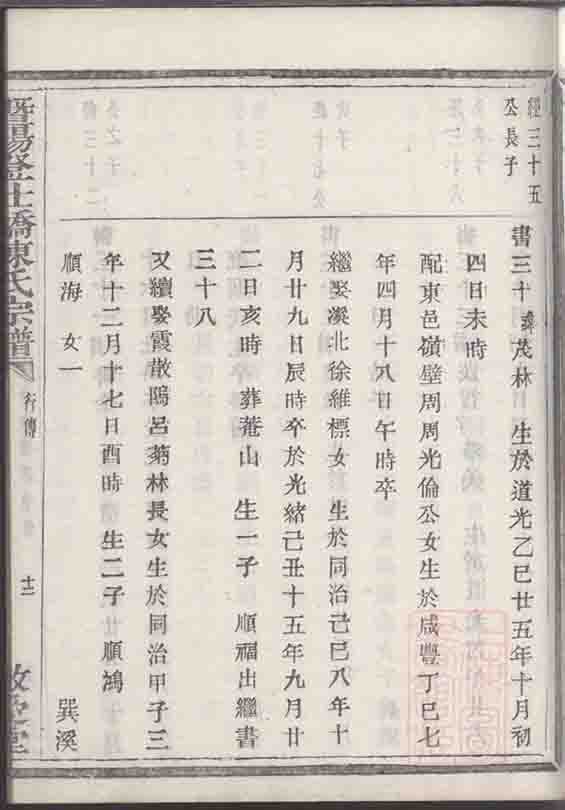 經三十五
公長子
書三十 諱茂林 生於道光乙巳廿五年十月初
四日未時
配東邑嶺壁周周光倫公女生於咸豐丁巳七
年四月十八日午時卒
繼娶溪北徐維標女 生於同治己巳八年十
月廿九日辰時卒於光緒己丑十五年九月廿
二日亥時 葬菴山 生一子 順福出繼書
三十八
又續娶霞散塢呂菊林長女生於同治甲子三
年十二月十七日酉時 生二子 順鴻
順海 女一 巽溪
暨陽登仕橋陳氏宗譜 行傳 十二